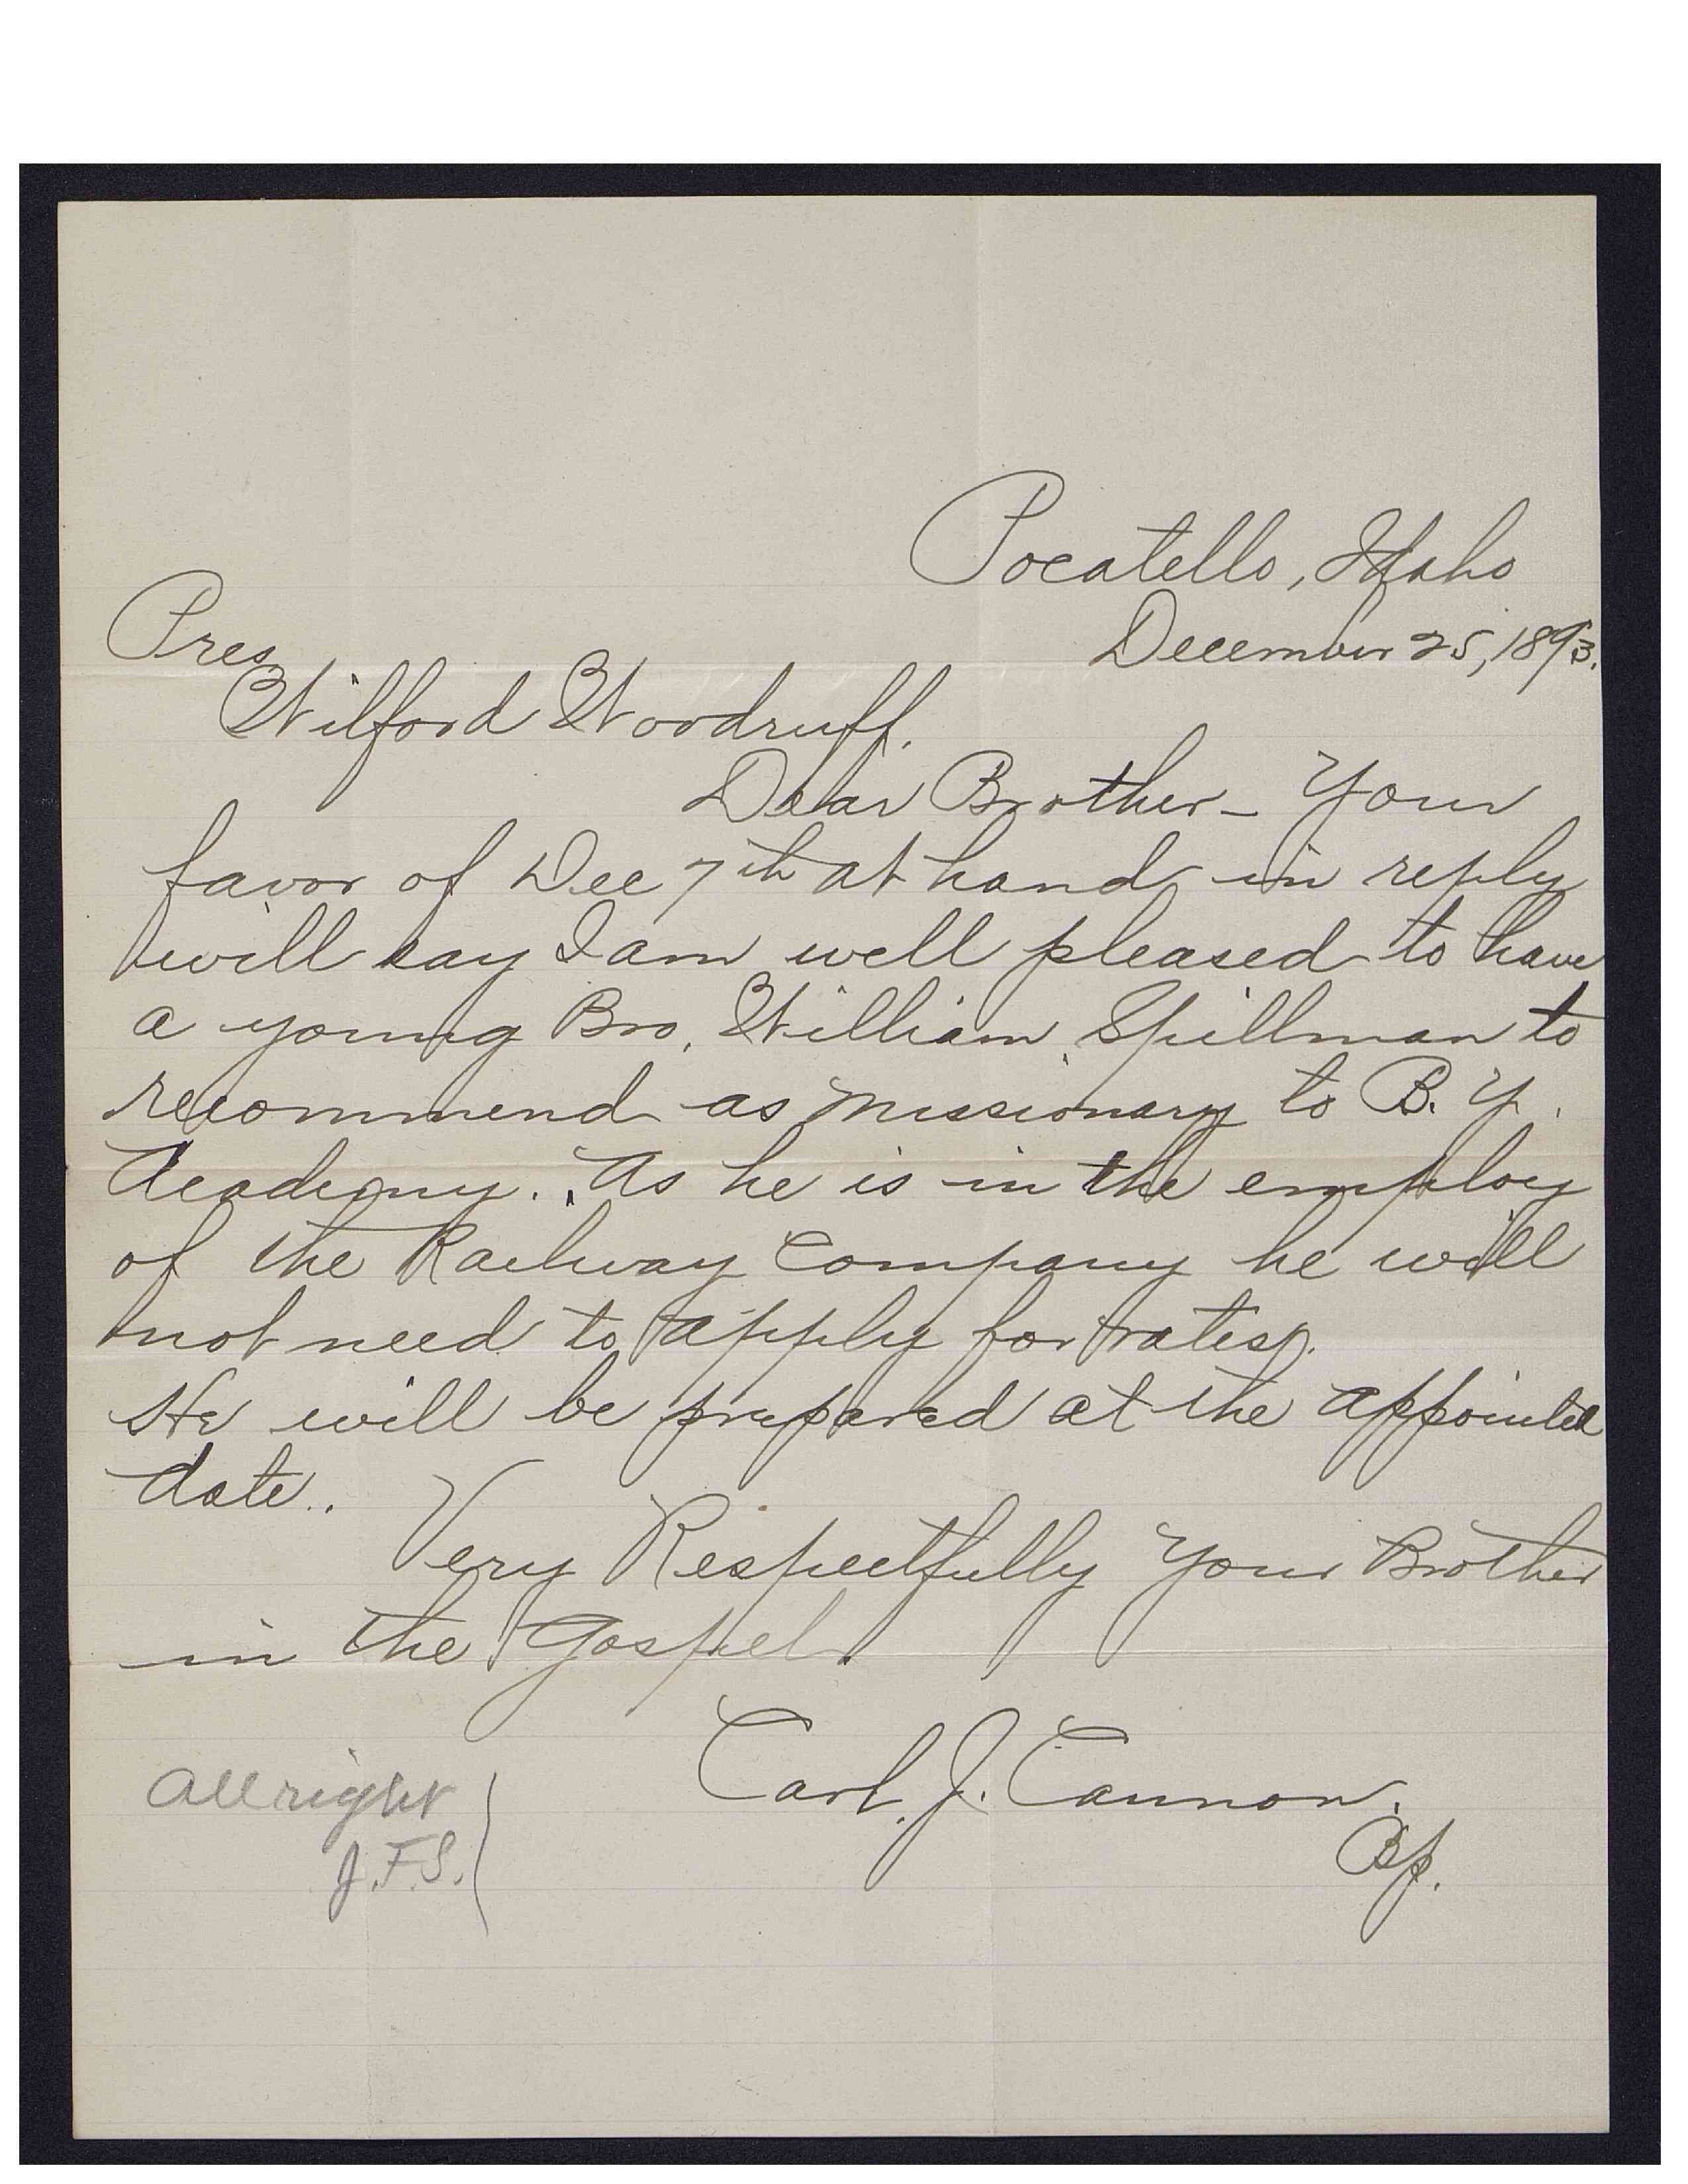 Pocatello, Idaho
December 25, 1893.
Pres
Wilford Woodruff.
Dear Brother - Your
favor of Dec 7th at hand in reply
will say I am well pleased to have
a young Bro. William Spillman to
recommend as missionary to B. Y.
Academy. As he is in the employ
of the Railway Company he will
not need to apply for rates.
He will be prepared at the appointed
date.
Very Respectfully Your Brother
in the Gospel.
Carl. J. Cannon.
Bp.
All right
J.F.S.